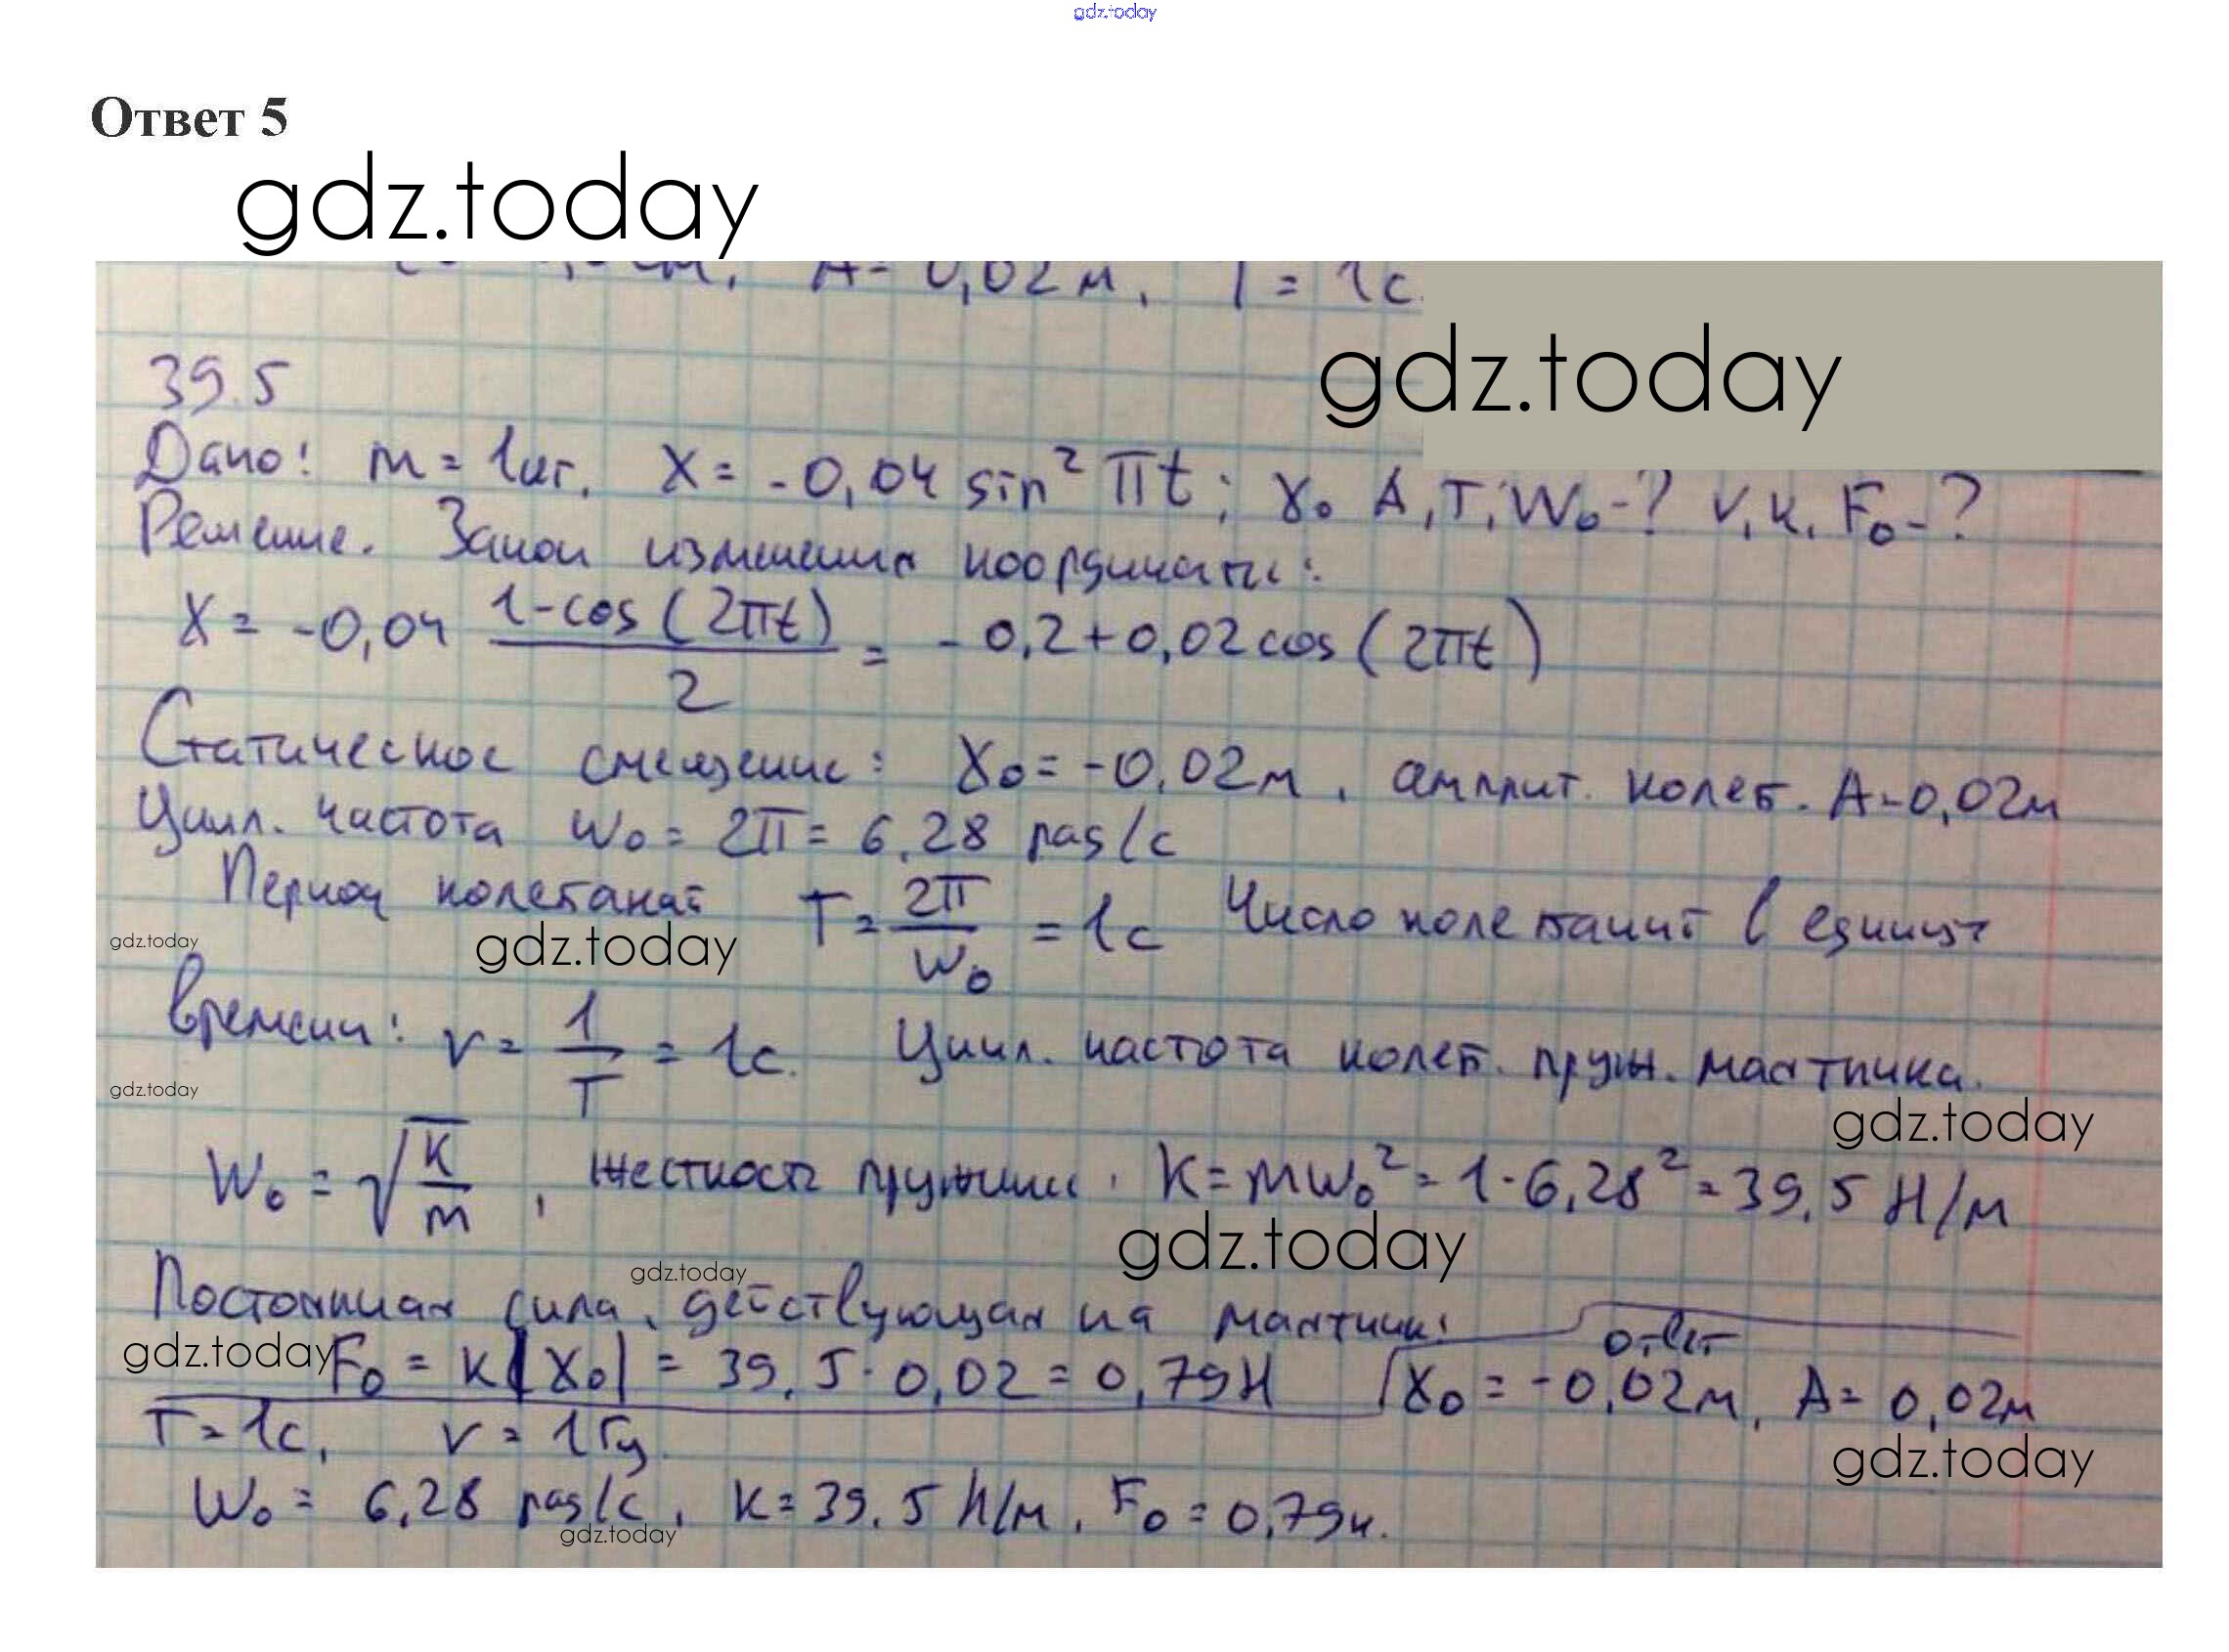 gdz.today
Ответ 5
gdz.today
A = 0,02 м, T = 1с.
gdz.today
39.5
Дано: m = 1кг. X = -0,04 sin² πt; X₀ A, T, W₀ - ? V, K, F₀ - ?
Решение. Закон изменения координаты:
X = -0,04 (1-cos(2πt))/2 = -0,2+0,02cos(2πt)
Статическое смещение: X₀ = -0,02м, амплит. колеб. A-0,02м
Цикл. частота W₀ = 2π = 6,28 рад/с
Период колебаний T = 2π/W₀ = 1с Число колебаний в единицу
gdz.today gdz.today
времени: V = 1/T = 1с. Цикл. частота колеб. пруж. маятника.
gdz.today
gdz.today
W₀ = √(K/m), жесткость пружины. K = mW₀² = 1·6,28² = 39,5 Н/м
gdz.today
gdz.today
Постоянная сила, действующая на маятник: ответ
gdz.today F₀ = K|X₀| = 39,5·0,02 = 0,79Н X₀ = -0,02м, A = 0,02м
T = 1с, V = 1Гц.
gdz.today
W₀ = 6,28 рад/с, K = 39,5 Н/м, F₀ = 0,79н.
gdz.today